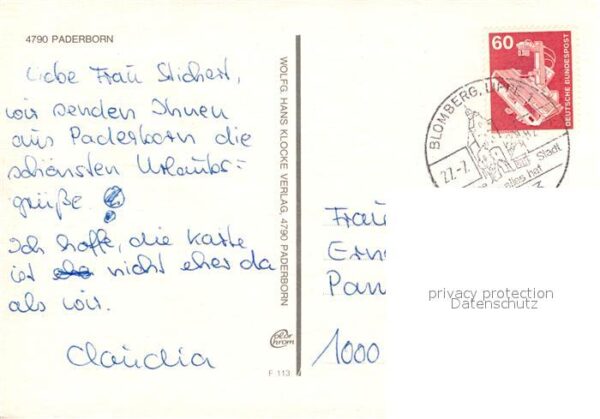 4790 PADERBORN
Liebe Frau Stichert,
wir senden Ihnen
aus Paderborn die
schönsten Urlaubs=
grüße
Ich hoffe, die Karte
ist nicht eher da
als wir.
Claudia
WOLFG. HANS KLOCKE VERLAG, 4790 PADERBORN
color
chrom
F 113
60
DEUTSCHE BUNDESPOST
BLOMBERG, LIPPE
Stadt
alles hat
22.-7.
Frau
Ern
Pan
1000
privacy protection
Datenschutz